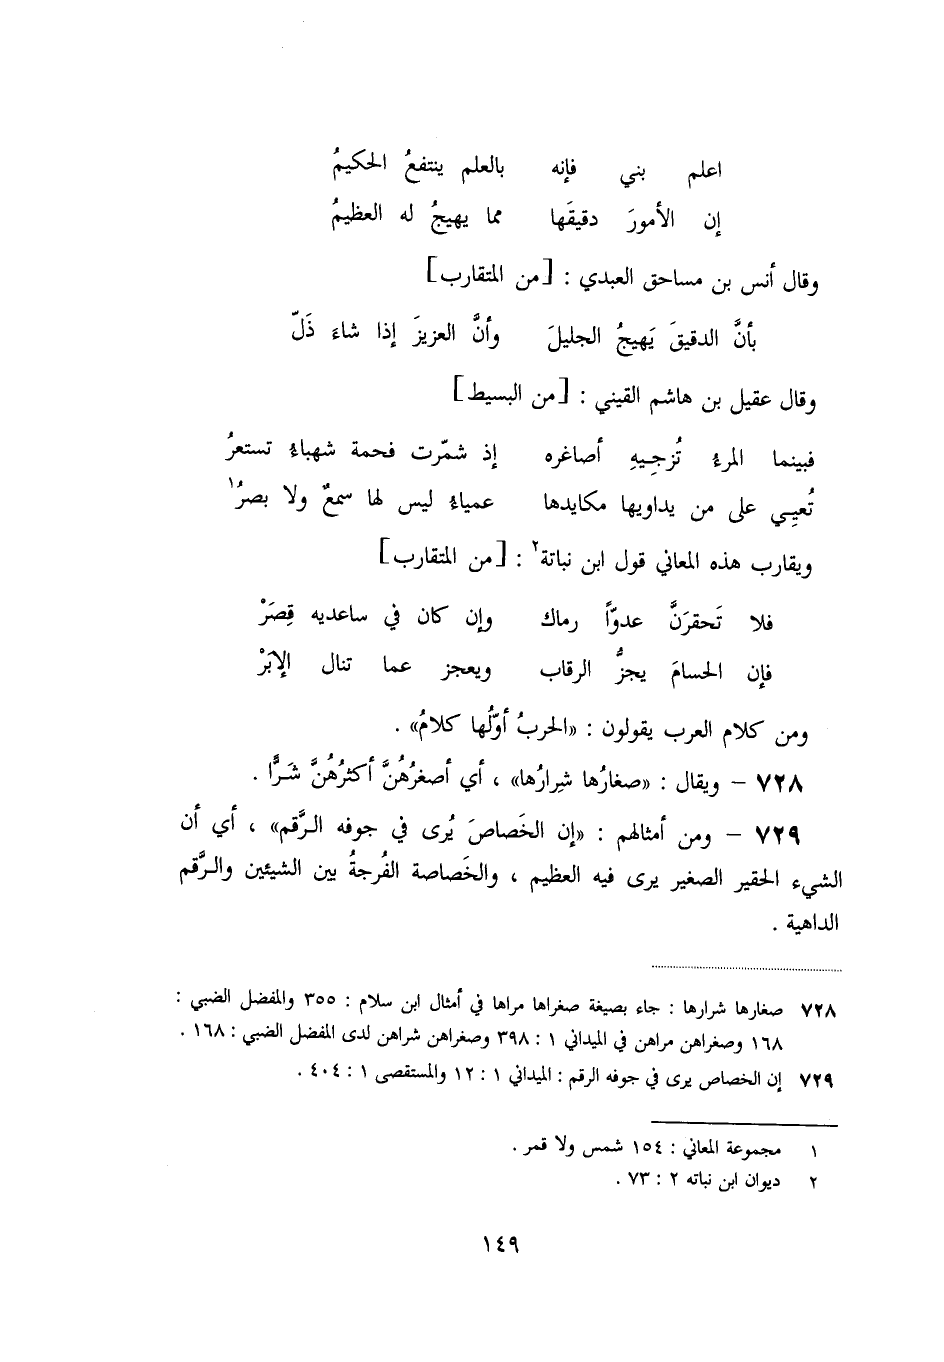 اعلم بني فإنه بالعلم ينتفعُ الحكيمُ
إن الأمورَ دقيقَها مما يهيجُ له العظيمُ
وقال أنس بن مساحق العبدي : [من المتقارب]
بأنَّ الدقيقَ يَهيجُ الجليلَ وأنَّ العزيزَ إذا شاءَ ذَلّ
وقال عقيل بن هاشم القيني : [من البسيط]
فبينما المرءُ تُزجِيهِ أصاغره إذ شمّرت فحمة شهباءُ تستعرُ
تُعيِي على من يداويها مكايدها عمياءُ ليس لها سمعٌ ولا بصرُ١
ويقارب هذه المعاني قول ابن نباتة٢ : [من المتقارب]
فلا تَحقرَنَّ عدوّاً رماك وإن كان في ساعديه قِصَرْ
فإن الحسامَ يجزُّ الرقاب ويعجز عما تنال الإبَرْ
ومن كلام العرب يقولون : «الحربُ أوّلُها كلامُ» .
٧٢٨ – ويقال : «صغارُها شِرارُها» ، أي أصغرُهُنَّ أكثرُهُنَّ شَرًّا .
٧٢٩ – ومن أمثالهم : «إن الخَصاصَ يُرى في جوفه الرَّقم» ، أي أن
الشيء الحقير الصغير يرى فيه العظيم ، والخَصاصة الفُرجةُ بين الشيئين والرَّقم
الداهية .
٧٢٨ صغارها شرارها : جاء بصيغة صغراها مراها في أمثال ابن سلام : ٣٥٥ والمفضل الضبي :
١٦٨ وصغراهن مراهن في الميداني ١ : ٣٩٨ وصغراهن شراهن لدى المفضل الضبي : ١٦٨ .
٧٢٩ إن الخصاص يرى في جوفه الرقم : الميداني ١ : ١٢ والمستقصى ١ : ٤٠٤ .
١ مجموعة المعاني : ١٥٤ شمس ولا قمر .
٢ ديوان ابن نباته ٢ : ٧٣ .
١٤٩